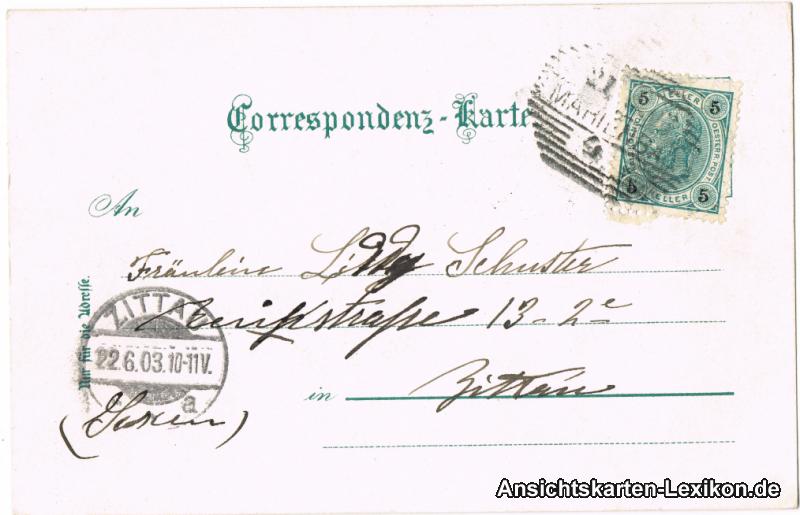 Correspondenz-Karte
5 HELLER 5
OESTERR. POST.
5 HELLER 5
An
Fräulein Liddy Schuster
13-2e
in Zittau
Nur für die Adresse.
ZITTAU
22.6.03.10-11V.
a
Ansichtskarten-Lexikon.de